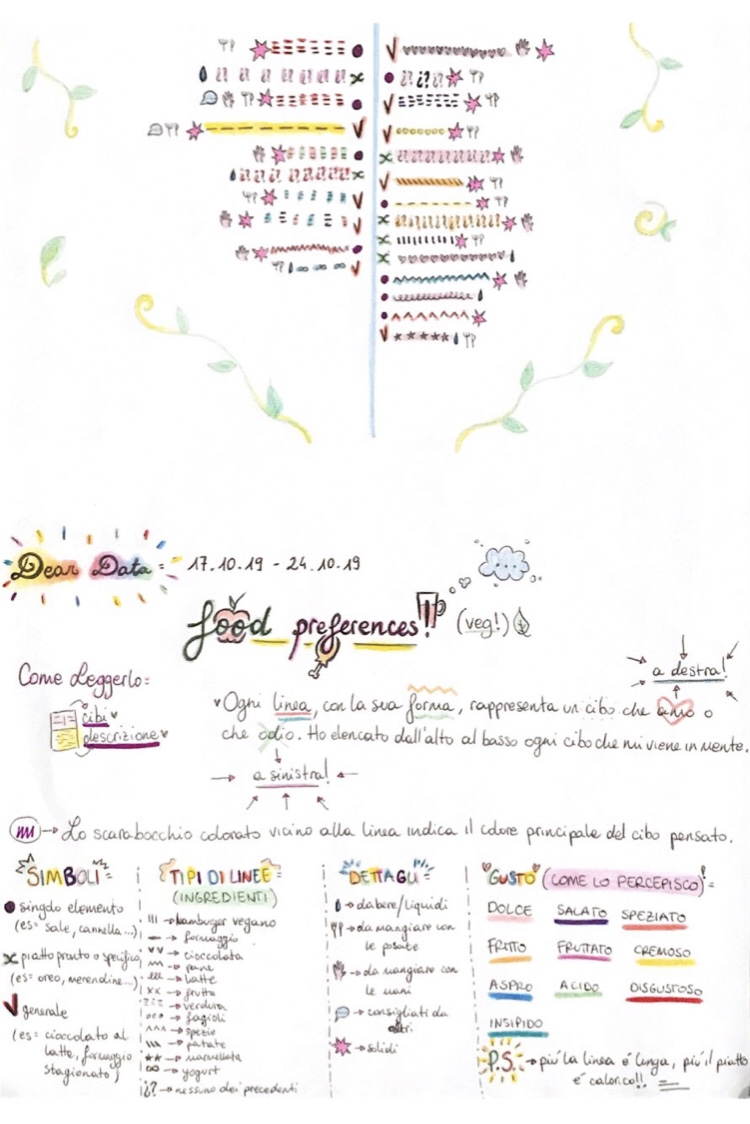 Dear Data = 17.10.19 - 24.10.19
food preferences!! (veg!)
Come leggerlo:
cibi
descrizione
a destra!
Ogni linea, con la sua forma, rappresenta un cibo che amo o
che odio. Ho elencato dall'alto al basso ogni cibo che mi viene in mente.
a sinistra!
→ Lo scarabocchio colorato vicino alla linea indica il colore principale del cibo pensato.
SIMBOLI
singolo elemento
(es= sale, cannella...)
piatto pronto o specifico
(es= oreo, merendine...)
generale
(es= cioccolato al
latte, formaggio
stagionato)
TIPI DI LINEE
(INGREDIENTI)
→ hamburger vegano
→ formaggio
→ cioccolata
→ pane
→ latte
→ frutta
→ verdura
→ fagioli
→ spezie
→ patate
→ marmellata
→ yogurt
¿? → nessuno dei precedenti
DETTAGLI
→ da bere/liquidi
→ da mangiare con
le posate
→ da mangiare con
le mani
→ consigliati da
altri
→ solidi
GUSTO (COME LO PERCEPISCO)! =
DOLCE SALATO SPEZIATO
FRITTO FRUTTATO CREMOSO
ASPRO ACIDO DISGUSTOSO
INSIPIDO
P.S. → più la linea é lunga, più il piatto
é calorico!!